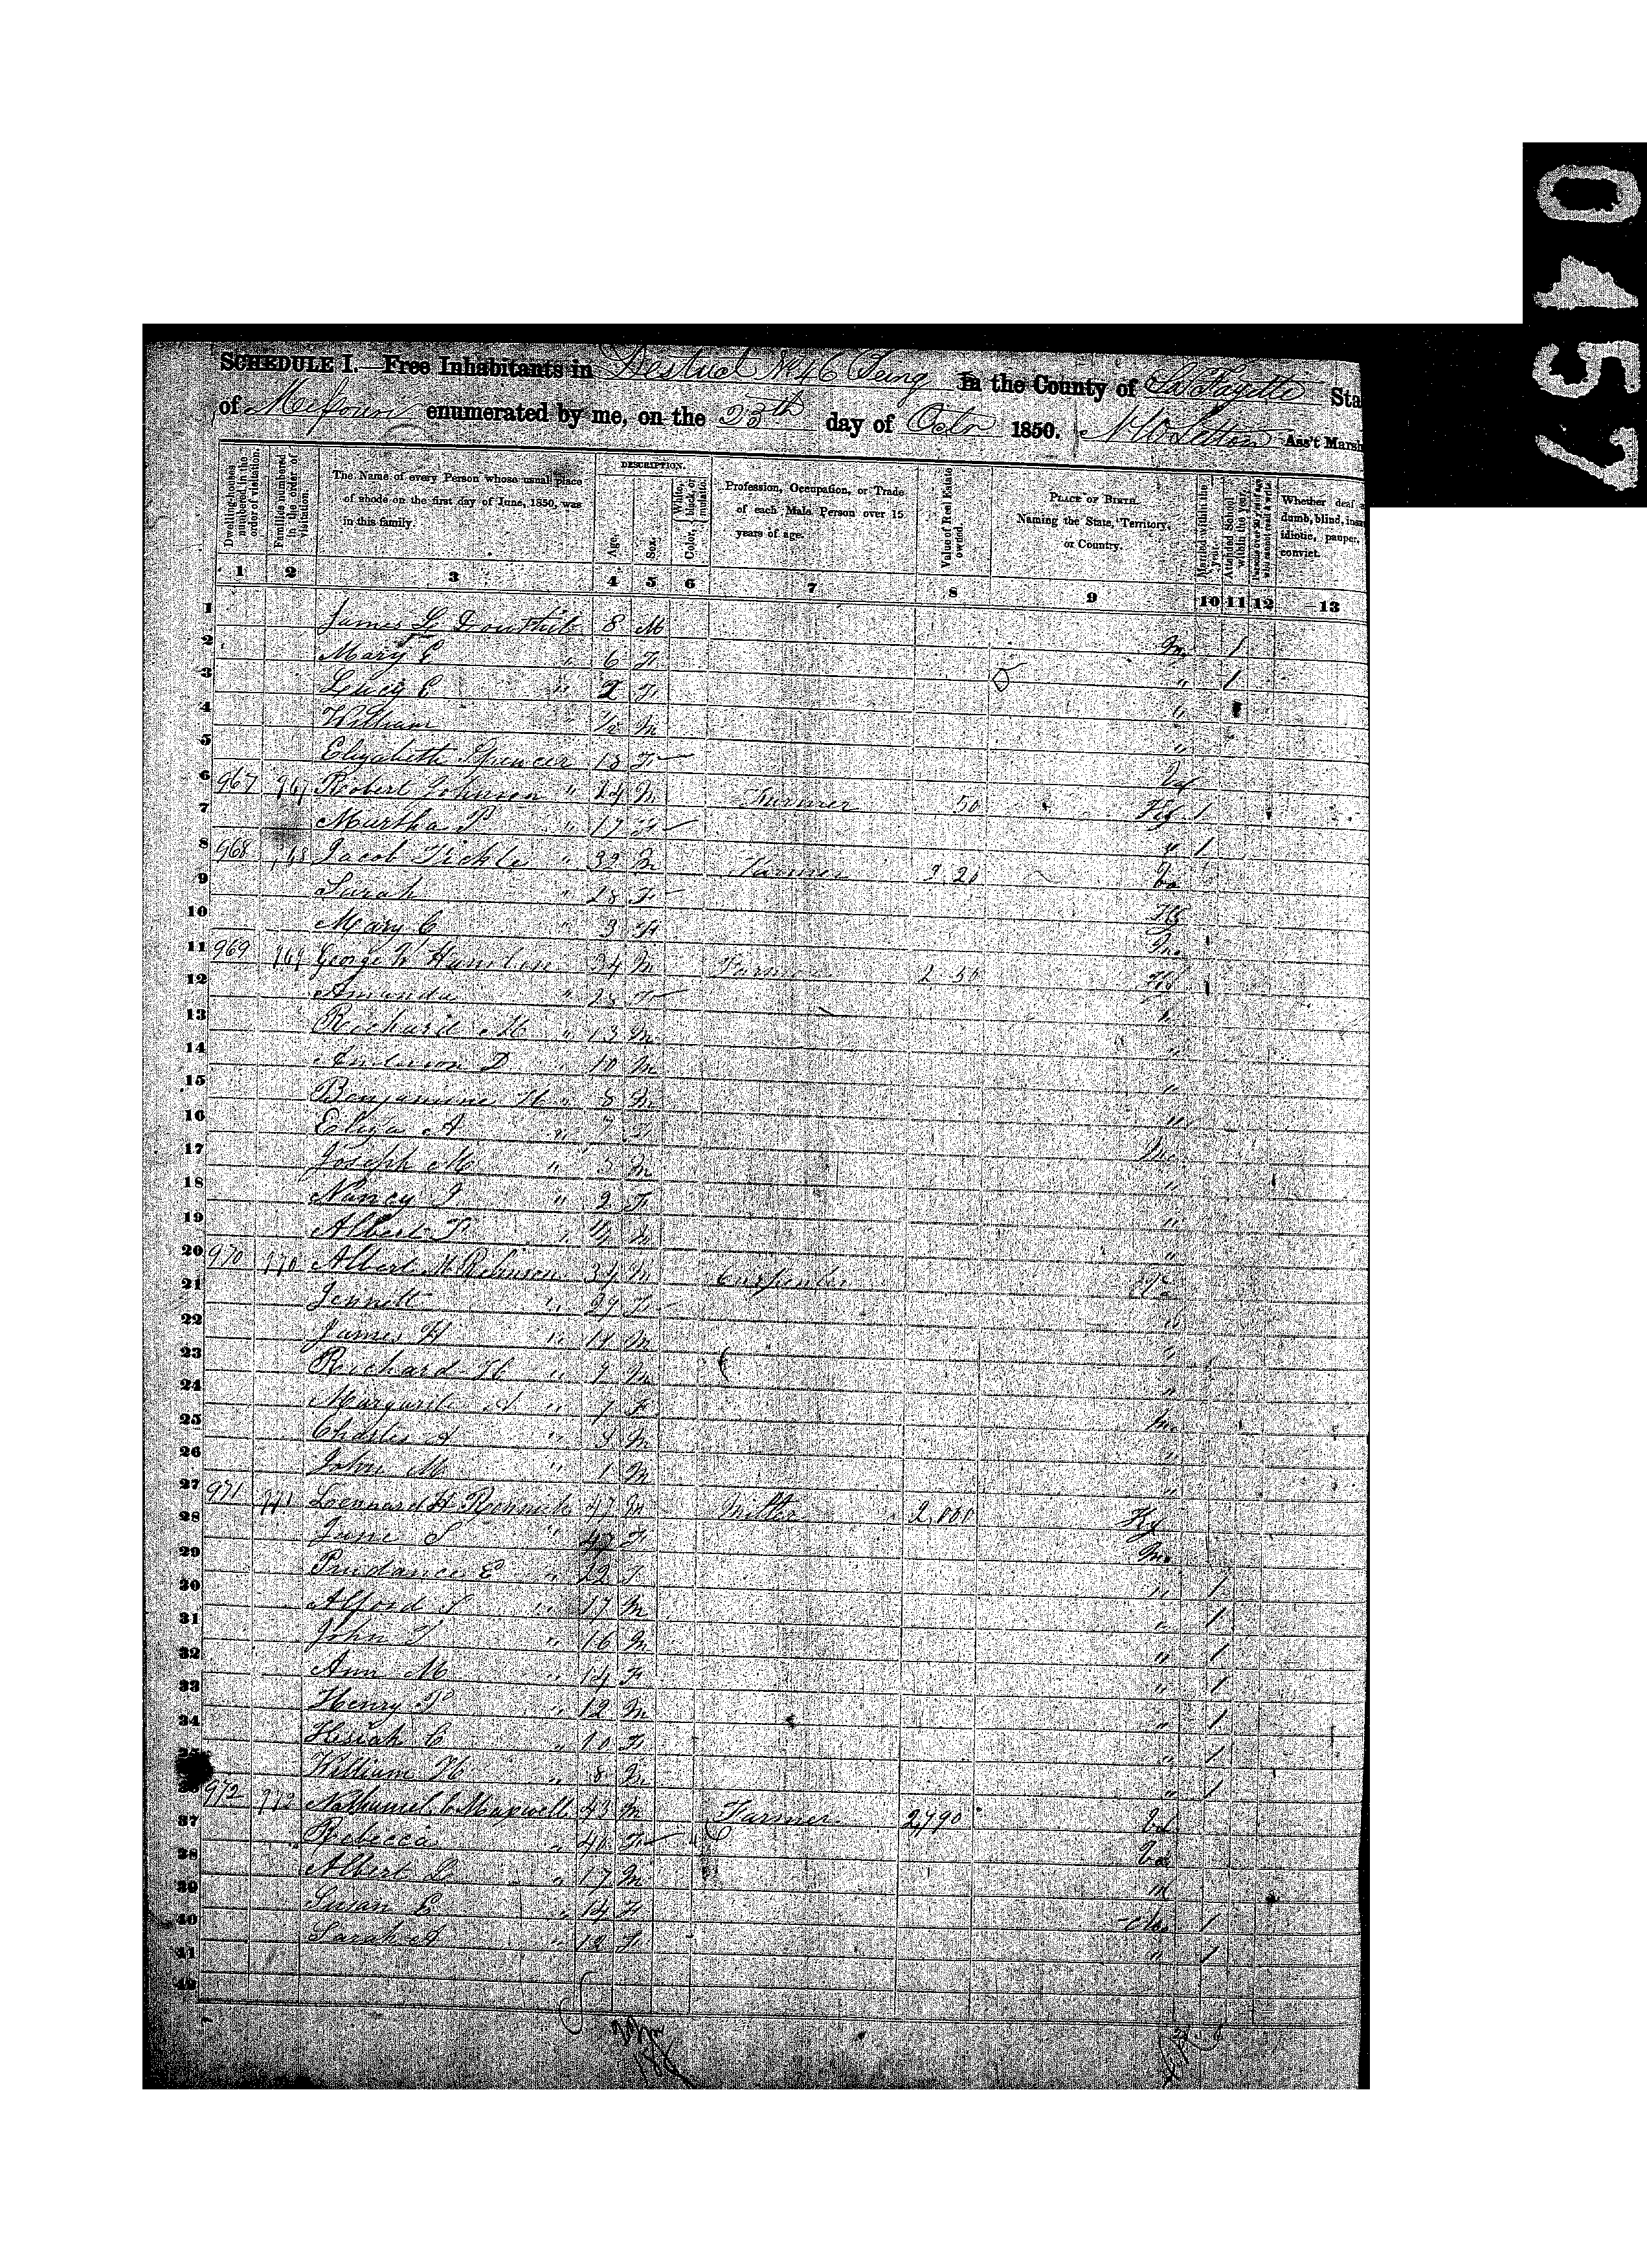 0457
SCHEDULE I.—Free Inhabitants in District No 46 in the County of La Fayette Sta
of Missouri enumerated by me, on the 23th day of Octo 1850. Ass't Marsh
Dwelling-houses numbered in the order of visitation.
Families numbered in the order of visitation.
The Name of every Person whose usual place of abode on the first day of June, 1850, was in this family.
DESCRIPTION.
Age.
Sex.
Color, White, black, or mulatto.
Profession, Occupation, or Trade of each Male Person over 15 years of age.
Value of Real Estate owned.
PLACE OF BIRTH. Naming the State, Territory, or Country.
Married within the year.
Attended School within the year.
Persons over 20 y'rs of age who cannot read & write.
Whether deaf dumb, blind, insa idiotic, pauper, convict.
1 2 3 4 5 6 7 8 9 10 11 12 13
1 James L 8 M Mo 1
2 Mary E " 6 F " 1
3 Lucy E " 2 F "
4 William " M "
5 Elizabeth Spencer 18 F
6 967 967 Robert Johnson " 24 M Farmer 50 Ky 1
7 Martha P " 17 F " 1
8 968 968 Jacob Tickle " 32 M Farmer 2,20 Va
9 Sarah " 28 F Ky
10 Mary C " 3 F Mo
11 969 969 George W 34 M Farmer 2 50 Ky
12 Amanda " 28 F "
13 Richard M " 13 M "
14 Anderson D " 10 M "
15 Benjamine H " 8 M "
16 Eliza A " 7 F Mo
17 Joseph M " 5 M "
18 Nancy J " 2 F "
19 Albert T " M "
20 970 970 Albert M Robinson 34 M Carpenter Va
21 Jennett " 39 F "
22 James H " 11 M "
23 Richard H " 9 M "
24 Margarite A " 7 F Mo
25 Charles A " 4 M "
26 John M " 1 M "
27 971 971 Leonnard H Rennick 47 M Miller 2,000 Ky
28 Jane S " 42 F Mo
29 Prudance E " 22 F " 1
30 Alford S " 17 M " 1
31 John T " 16 M " 1
32 Ann M " 14 F " 1
33 Henry P " 12 M " 1
34 Kesiah C " 10 F " 1
35 William H " 8 M " 1
36 972 972 Nathaniel C Maxwell 43 M Farmer 2,790 Va
37 Rebecca " 40 F Va
38 Albert L " 17 M "
39 Susan E " 14 F Mo 1
40 Sarah A " 12 F " 1
41
42